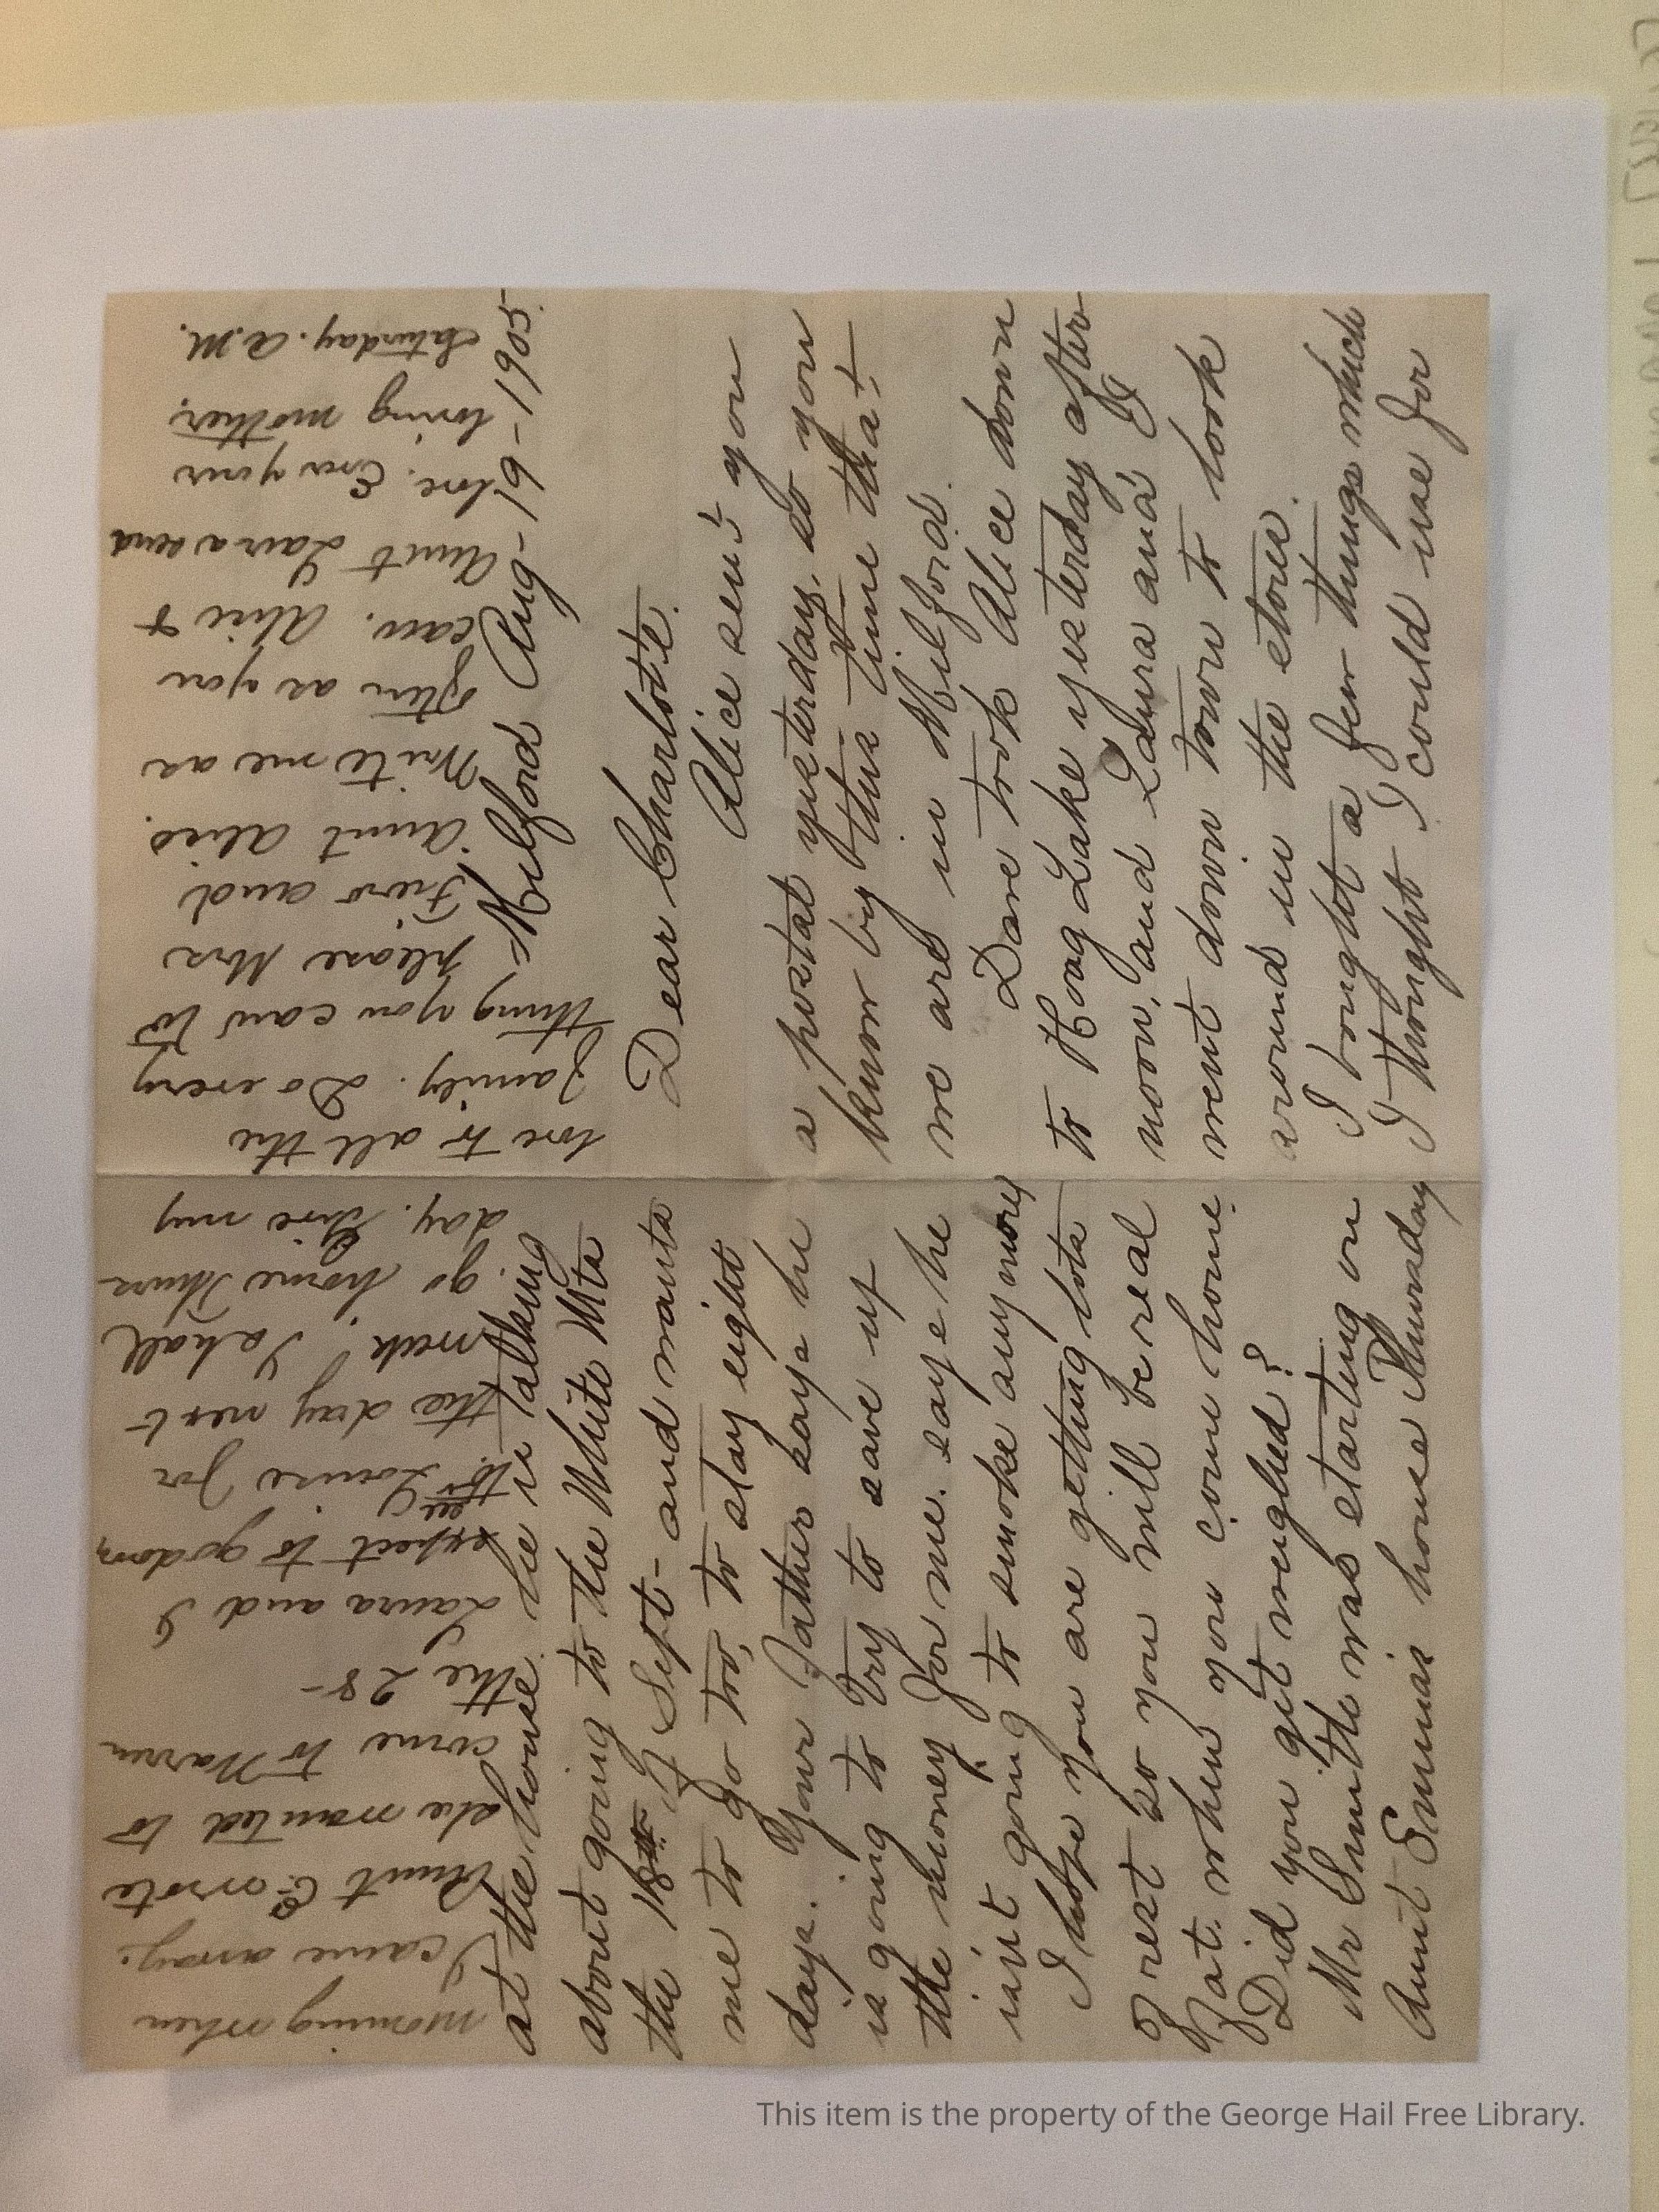 Milford Aug-19-1905.
Dear Charlotte.
Alice sent you
a postal yesterday, so you
know by this time that
we are in Milford.
Dave took Alice down
to Hoag Lake yesterday after
noon, and Laura and I
went down town to look
around in the stores.
I bought a few things which
I thought I could use for
at the house he is talking
about going to the White Mts
the 18th of Sept- and wants
me to go too, to stay eight
days. Your Father says he
is going to try to save up
the money for me. says he
isn't going to smoke any more
I hope you are getting lots
of rest so you will be real
fat. when you come home.
Did you get weighed?
Mr Smith was starting on
Aunt Emmas house Thursday
morning when
I came away.
Aunt C- wrote
she wanted to
come to Warren
the 28-
Laura and I
expect to go down
to see Louise for
the day next
week. I shall
go home Thurs
day. Give my
love to all the
family. Do every
thing you can to
please Mrs
and
Aunt Alice.
Write me as
often as you
can. Alice &
Aunt Laura send
love. Ever your
loving mother.
Saturday. A.M.
This item is the property of the George Hail Free Library.